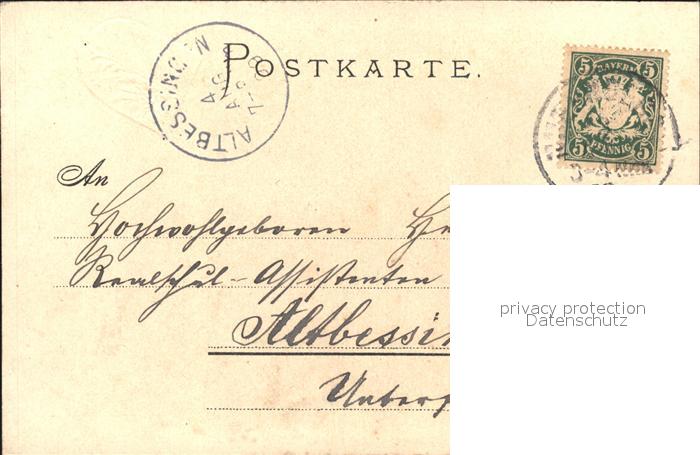 POSTKARTE.
ALTBESSINGEN
4
AUG
7-8
BAYERN
5 5
5 5
PFENNIG
An
Hochwohlgeboren He
Realschul-Assistenten
Altbessin
Unterf
privacy protection
Datenschutz